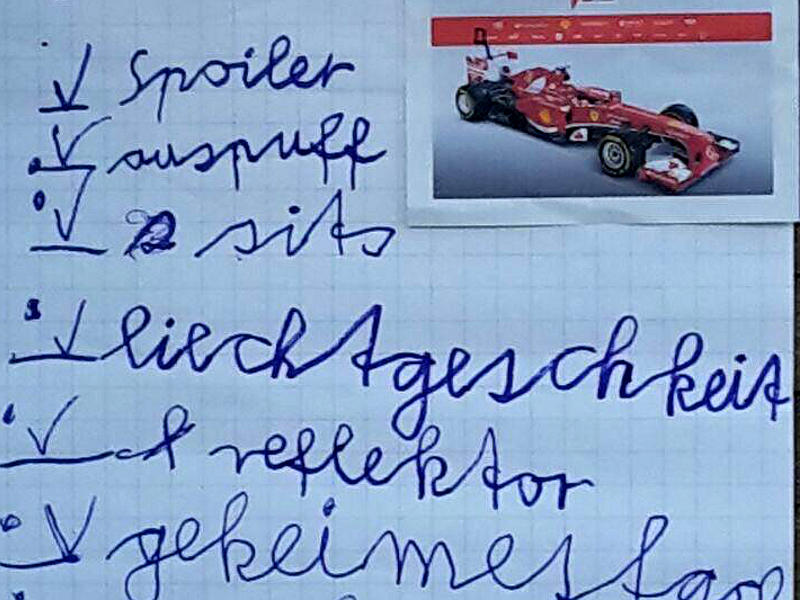 Spoiler
auspuff
sits
liechtgeschkeit
reflektor